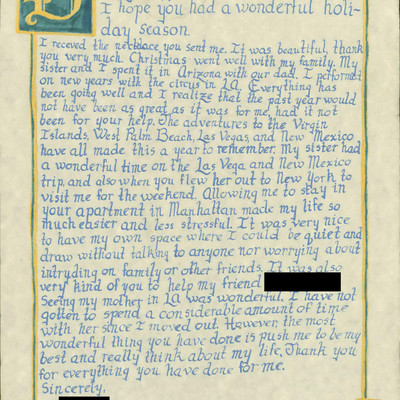 D
I hope you had a wonderful holi-
day season.
I receved the necklace you sent me. It was beautiful, thank
you very much. Christmas went well with my family. My
sister and I spent it in Arizona with our dad. I performed
on new years with the circus in LA. Everything has
been going well and I realize that the past year would
not have been as great as it was for me, had it not
been for your help. The adventures to the Virgin
Islands, West Palm Beach, Las Vegas, and New Mexico
have all made this a year to remember. My sister had
a wonderful time on the Las Vega and New Mexico
trip, and also when you flew her out to New York to
visit me for the weekend. Allowing me to stay in
your apartment in Manhattan made my life so
much easier and less stressful. It was very nice
to have my own space where I could be quiet and
draw without talking to anyone nor worrying about
intryding on family or other friends. It was also
very kind of you to help my friend
Seeing my mother in LA was wonderful. I have not
gotten to spend a considerable amount of time
with her since I moved out. However, the most
wonderful thing you have done is push me to be my
best and really think about my life. Thank you
for everything you have done for me.
Sincerely,